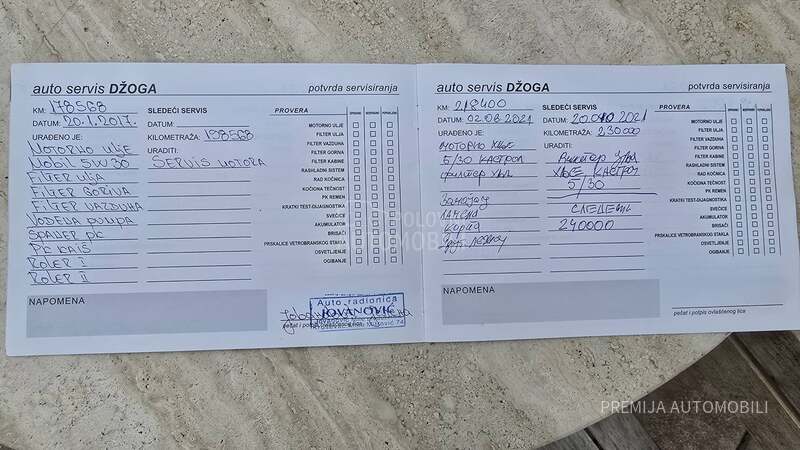 auto servis DŽOGA
potvrda servisiranja
KM: 178568
DATUM: 20.1.2017.
URAĐENO JE:
MOTORNO ULJE
MOBIL 5W30
FILTER ULJA
FILTER GORIVA
FILTER VAZDUHA
VODENA PUMPA
ŠPANER PK
PK KAIŠ
ROLER I
ROLER II
SLEDEĆI SERVIS
DATUM:
KILOMETRAŽA: 198568
URADITI:
SERVIS MOTORA
PROVERA
MOTORNO ULJE
FILTER ULJA
FILTER VAZDUHA
FILTER GORIVA
FILTER KABINE
RASHLADNI SISTEM
RAD KOČNICA
KOČIONA TEČNOST
PK REMEN
KRATKI TEST-DIJAGNOSTIKA
SVEĆICE
AKUMULATOR
BRISAČI
PRSKALICE VETROBRANSKOG STAKLA
OSVETLJENJE
OGIBANJE
NAPOMENA
Auto radionica
JOVANOVIĆ
pečat i potpis ovlašćenog lica
auto servis DŽOGA
potvrda servisiranja
KM: 218400
DATUM: 02.08.2021
URAĐENO JE:
5/30 КАСТРОЛ
SLEDEĆI SERVIS
DATUM: 20.010 2021
KILOMETRAŽA: 230000
URADITI:
УЉЕ КАСТРОЛ
5/30
240000
PROVERA
MOTORNO ULJE
FILTER ULJA
FILTER VAZDUHA
FILTER GORIVA
FILTER KABINE
RASHLADNI SISTEM
RAD KOČNICA
KOČIONA TEČNOST
PK REMEN
KRATKI TEST-DIJAGNOSTIKA
SVEĆICE
AKUMULATOR
BRISAČI
PRSKALICE VETROBRANSKOG STAKLA
OSVETLJENJE
OGIBANJE
NAPOMENA
pečat i potpis ovlašćenog lica
PREMIJA AUTOMOBILI